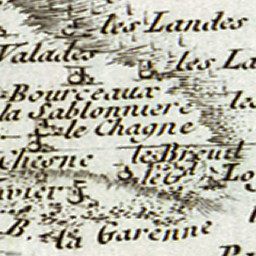 les Landes
Valades
les La
Bourceaux
la Sablonniere
les
le Chagne
Chesne
le Breuil
vivier
B.
la Garenne